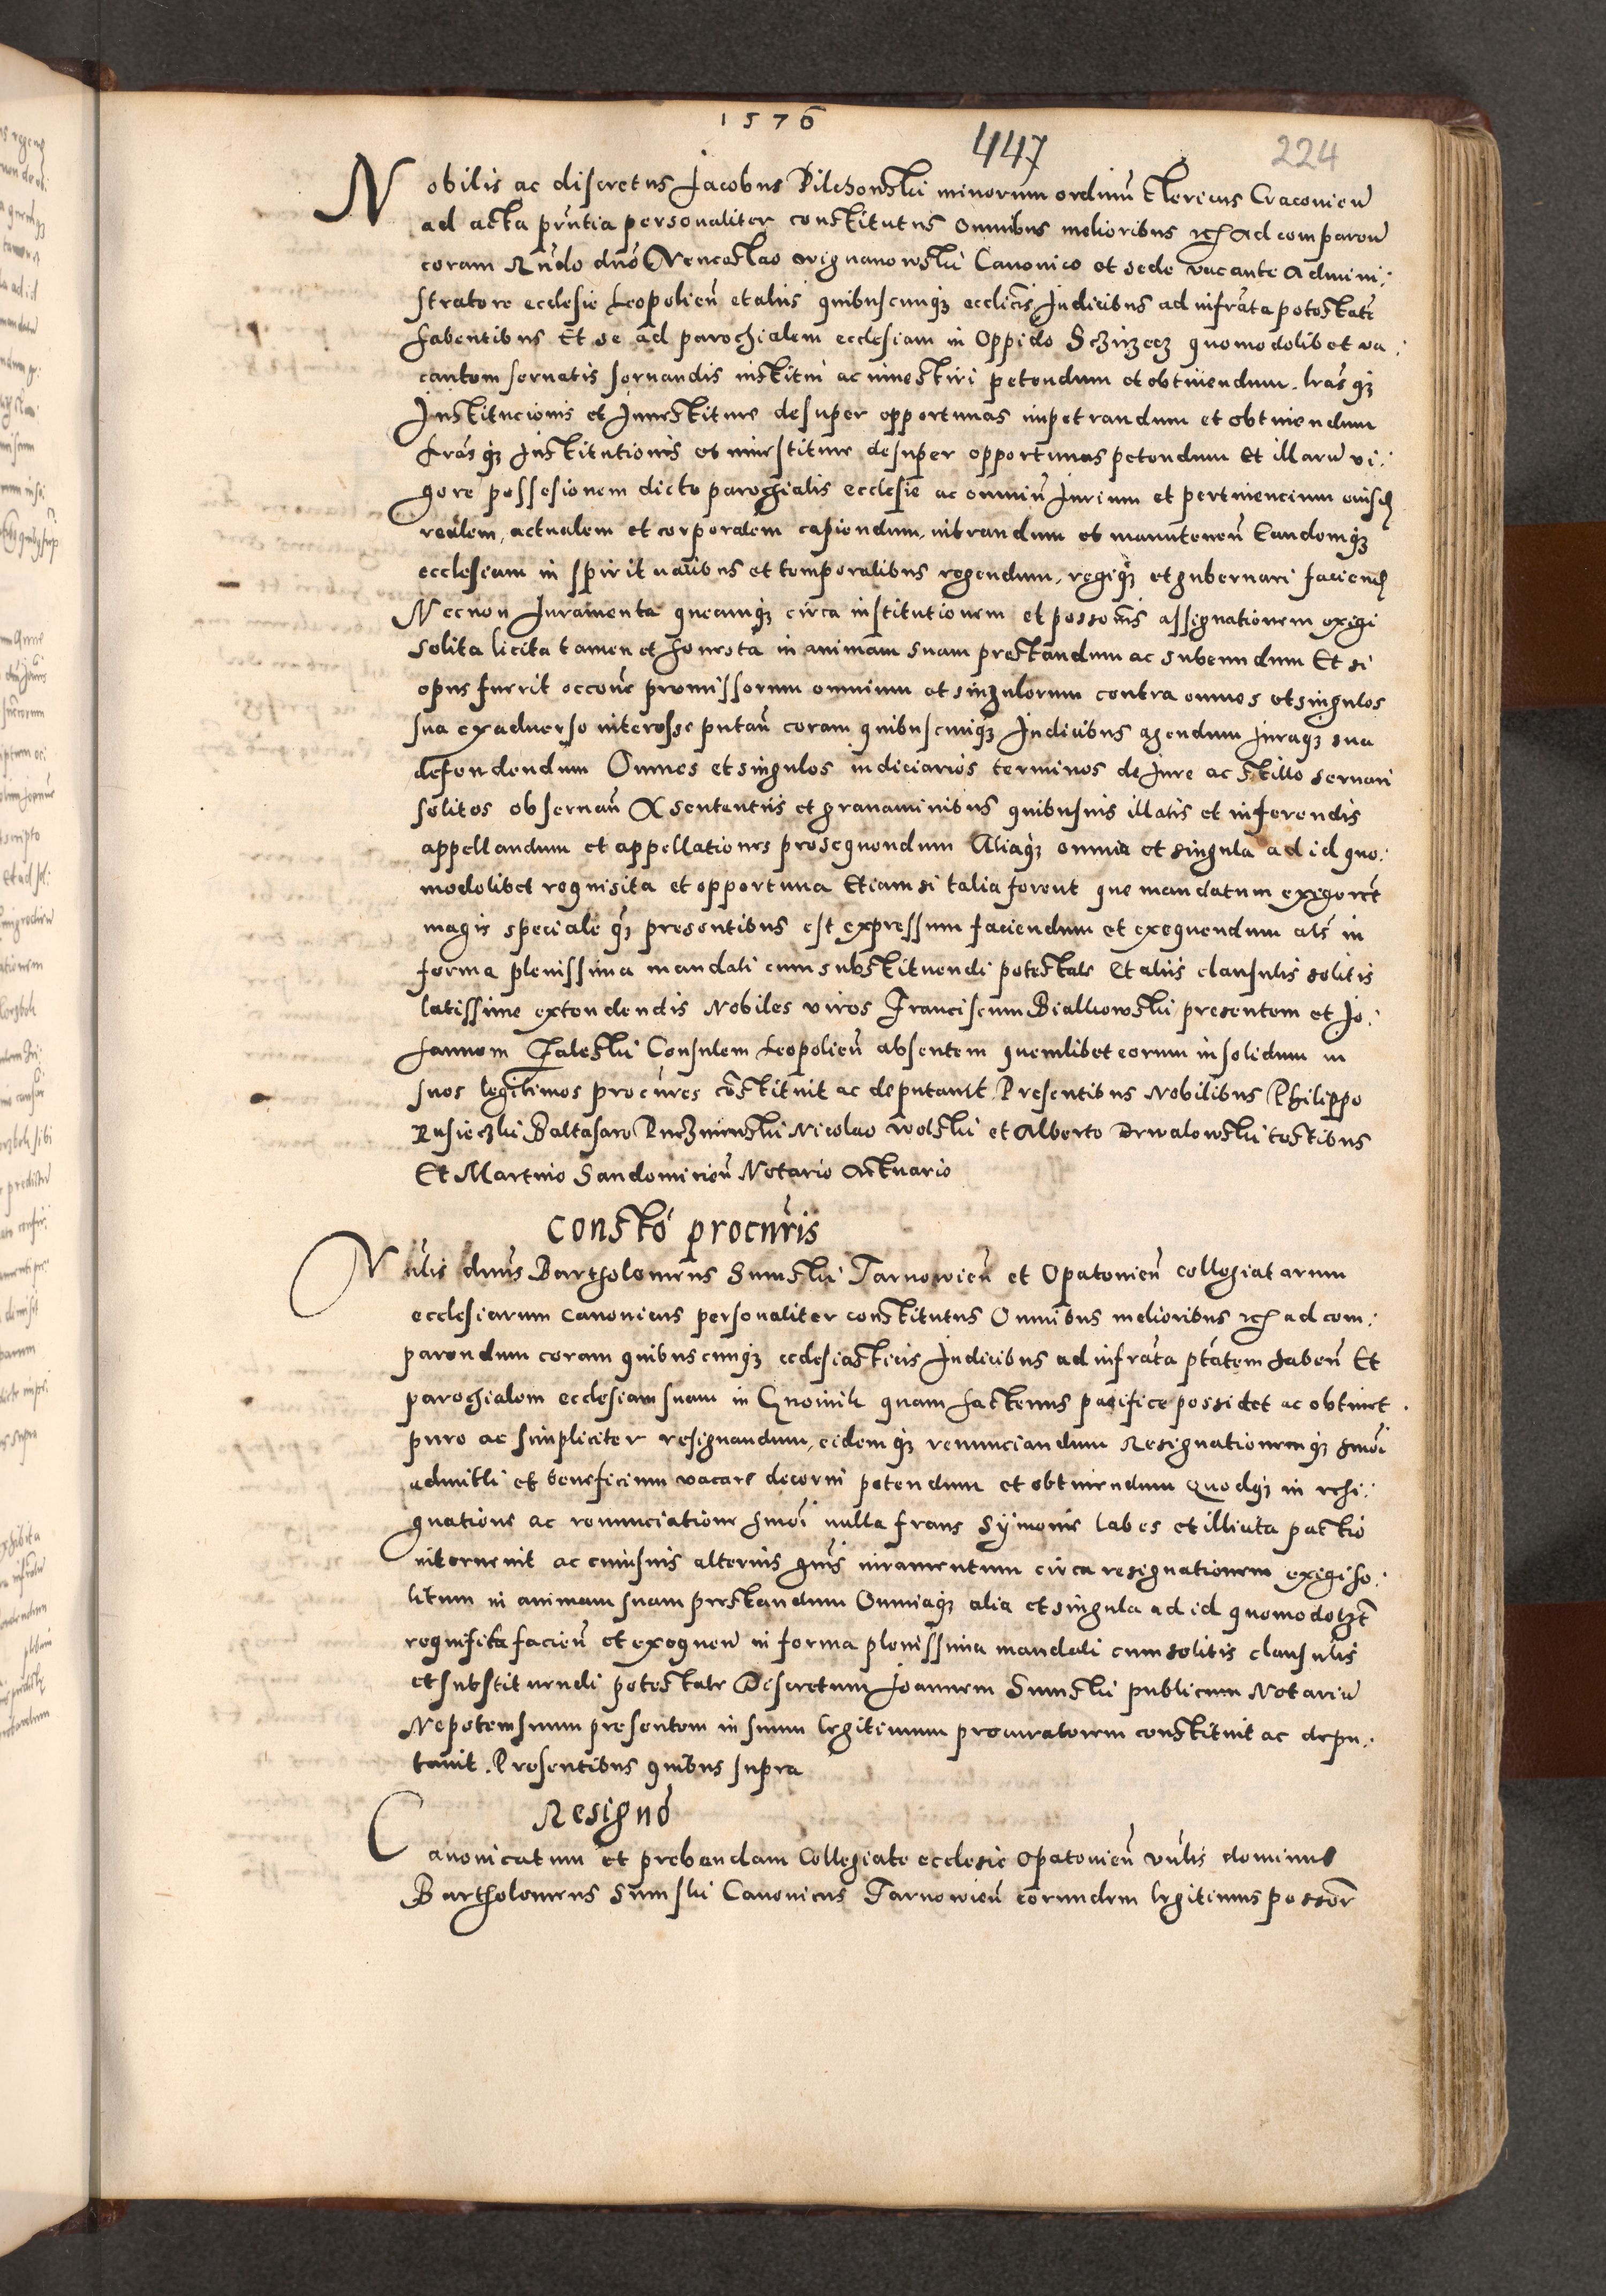 1576
447 224
Nobilis ac discretus Jacobus Pilchowski minorum ordinũ Clericus Cracovień
ad acta pñtia personaliter constitutus Omnibus melioribus etc Ad compareń
coram Rñdo dño Venceslao Wignanowski Canonico et sede vacante Admini:
stratore ecclesie Leopolień et aliis quibuscunq; ecclicis Judicibus ad infrãta potestatẽ
habentibus Et se ad parochialem ecclesiam in Oppido Sczirzecz quomodolibet va:
cantem servatis servandis institui ac investiri petendum et obtinendum. lrãsq;
Institucionis et Investiture desuper opportunas impetrandum et obtinendum
Lrãsq; Institutionis et investiture desuper opportunas petendum Et illarũ vi:
gore possesionem dicte parochialis ecclesie ac omniũ Jurium et pertinencium eiusd
realem, actualem et corporalem capiendum, intrandum et manuteneń Eandemq;
ecclesiam in spiritualibus et temporalibus regendum, regiq; et gubernari faciend
Necnon Juramenta quecunq; circa institutionem et possonis assignationem exigi
solita licita tamen et honesta in animam suam prestandum ac subeundum Et si
opus fuerit occone premissorum omnium et singulorum contra omnes et singulos
sua exadverso interesse putań coram quibuscunq; Judicibus agendum Juraq; sua
defendendum Omnes et singulos iudiciarios terminos de Jure ac stillo servari
solitos observań A sententiis et gravaminibus quibusvis illatis et inferendis
appellandum et appellationes prosequendum Aliaq; omnia et singula ad id quo:
modolibet requisita et opportuna Etiam si talia forent que mandatum exigerẽt
magis speciale q; presentibus est expressum faciendum et exequendum als in
forma plenissima mandati cum substituendi potestate Et aliis clausulis solitis
latissime extendendis Nobiles viros Franciscum Bialliowski presentem et Jo:
hannem Jaleski Consulem Leopolień absentem quemlibet eorum in solidum in
suos legitimos procures cõstituit ac deputavit Presentibus Nobilibus Philippo
Rusieczki Baltasaro Nicolao Wolski et Alberto Drwalowski testibus
Et Martino Sandomirień Notario Actuario
Consto procuris
Vñlis dnus Bartholomeus Sumski Tarnowień et Opatovień collegiatarum
ecclesiarum canonicus personaliter constitutus Omnibus melioribus etc ad com:
parendum coram quibuscunq; ecclesiasticis Judicibus ad infrãta ptãtem habeń Et
parochialem ecclesiam suam in Gnoinik quam hactenus pacifice possidet ac obtinet
pure ac simpliciter resignandum, eidemq; renunciandum Resignationemq; hmoi
admitti et beneficium vacare decerni petendum et obtinendum Quodq; in resi:
gnatione ac renunciatione hmoi nulla fraus Symonie labes et illicita pactio
intervenit ac cuiusvis alterius gñis iuramentum circa resignationem exigi so:
litum in animam suam prestandum Omniaq; alia et singula ad id quomodolzt
requisita facień et exequeń in forma plenissima mandati cum solitis clausulis
et substituendi potestate Discretum Joannem Sumski publicum Notariũ
Nepotem suum presentem in suum legitimum procuratorem constituit ac depu:
tavit. Presentibus quibus supra
Resigno
Canonicatum et prebendam Collegiate ecclesie Opatovień vñlis dominus
Bartholomeus Sumski Canonicus Tarnowień eorundem legitimus possor